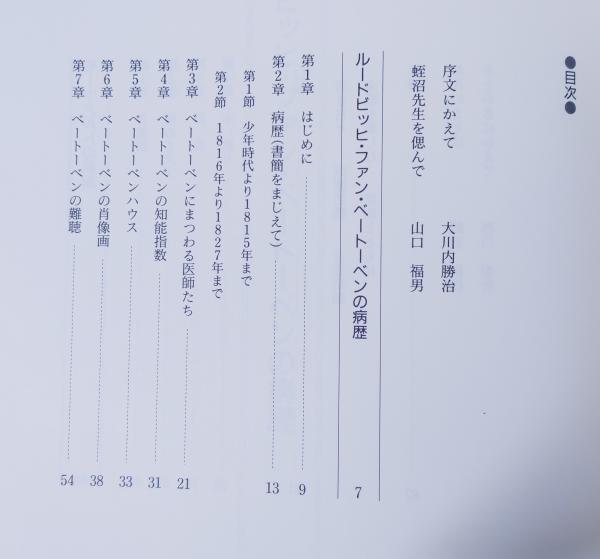 ●目次●
序文にかえて　大川内勝治
蛭沼先生を偲んで　山口　福男
ルードビッヒ・ファン・ベートーベンの病歴　7
第1章　はじめに　9
第2章　病歴（書簡をまじえて）　13
第1節　少年時代より1815年まで
第2節　1816年より1827年まで
第3章　ベートーベンにまつわる医師たち　21
第4章　ベートーベンの知能指数　31
第5章　ベートーベンハウス　33
第6章　ベートーベンの肖像画　38
第7章　ベートーベンの難聴　54